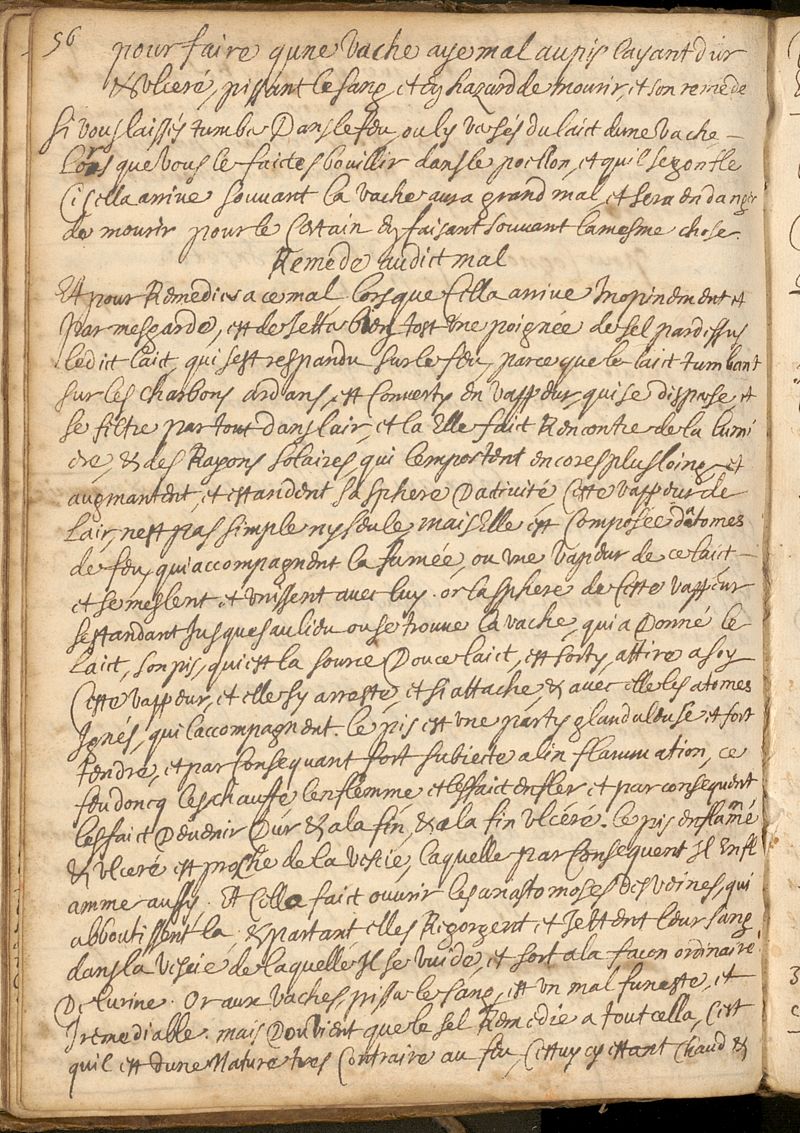 56
pour faire qune vache aye mal au pis layant dur
& ulceré, pissant le sang, et en hazard de mourir, et son remede
Si vous laissés tumber Dans le feu, ou ly versés du laict dune vache,
Lors que vous le faictes bouillir dans le poellon, et quil se gonfle
Cy cella arrive souvant la vache aura grand mal, et sera en danger
de mourir pour le Certain en faisant souvant la mesme chose.
Remede audict mal
Et pour Remedier a ce mal lors que Cella arrive Inopinement et
par mesgarde, est de Jetter bien tost une poignée de sel par dessus
ledict laict, qui sest respandu sur le feu, parce que le laict tumbant
sur les charbons ardans, est Converty en vappeur, qui se disperse et
se filtre par tout dans lair, et la Elle faict Rencontre de la lumi
ere, & des Rayons solaires, qui lemportent encores plus loing, et
augmantent, et estandent sa sphere Dativité, Cette vappeur de
Lair, nest pas simple ny seule, mais Elle est Composée datomes
de feu, qui accompagnent la fumée, ou une vapeur de ce laict
et se meslent, et unissent avec luy. or la sphere de Cette vappeur
sestandant Jusques au lieu ou se trouve la vache, qui a Donné le
laict, son pis, qui est la source Dou ce laict, est sorty, attire a soy
Cette vappeur, et elle sy arreste, et si attache, & avec elle les atomes
Ignés, qui laccompagnent. le pis est une party glanduleuse et fort
tendre, et par Consequant fort subiecte a lin flammation, ce
feu doncq leschauffe lenflemme et lesfaict enfler et par consequent
lesfaict Devenir Dur & a la fin, & a la fin ulcéré. le pis enflamé
& ulceré est proche de la vescie, laquelle par Consequent Il Enfl
amme aussy. Et Cella faict ouvrir les anastomoses des veines, qui
abboutissent la. & partant elles Regorgent et Jettent leur sang
dans la vescie de laquelle Il se vuide, et sort a la facon ordinaire
De lurine. Or aux vaches, pisser le sang, est un mal funeste, et
Iremediable. mais Dou vient que le sel Remedie a tout cella, Cest
quil est dune Nature tres Contraire au feu, Cettuy cy estant chaud &